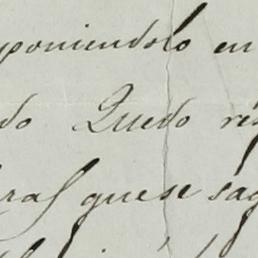 poniendolo en
do Quedo re
ral que se sa